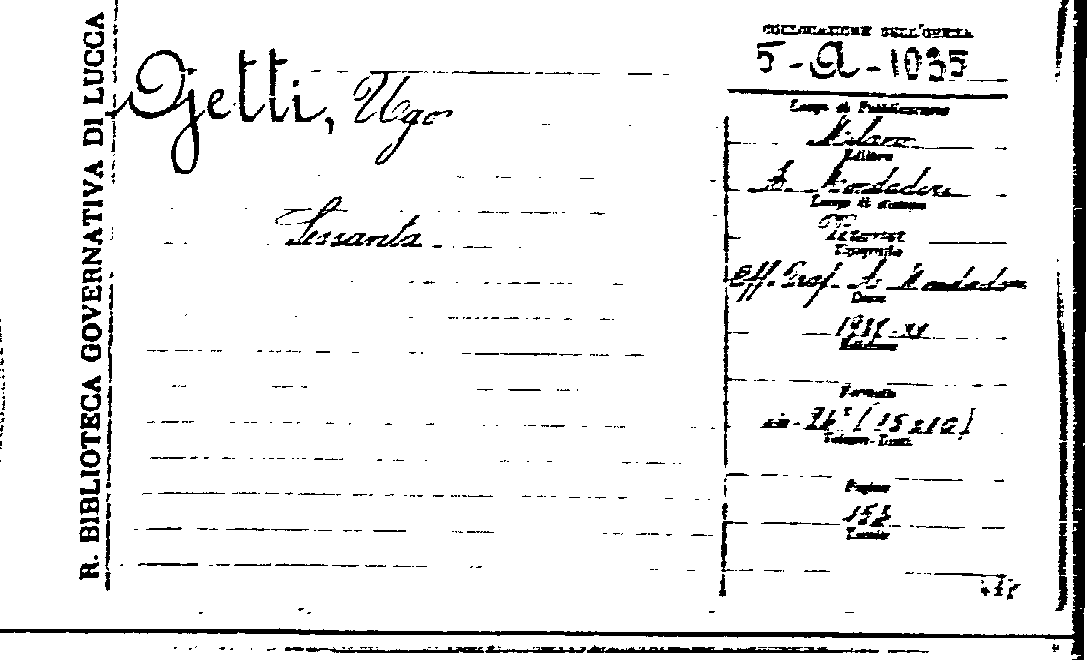 R. BIBLIOTECA GOVERNATIVA DI LUCCA
Ojetti, Ugo
Sessanta
COLLOCAZIONE DELL'OPERA
5-A-1035
Luogo di Pubblicazione
Milano
Editore
A. Mondadori
Luogo di stampa
Tipografia
Off. Graf. A. Mondadori
Data
Formato
in-16° (15x10)
Volumi-Tomi
Pagine
Tavole